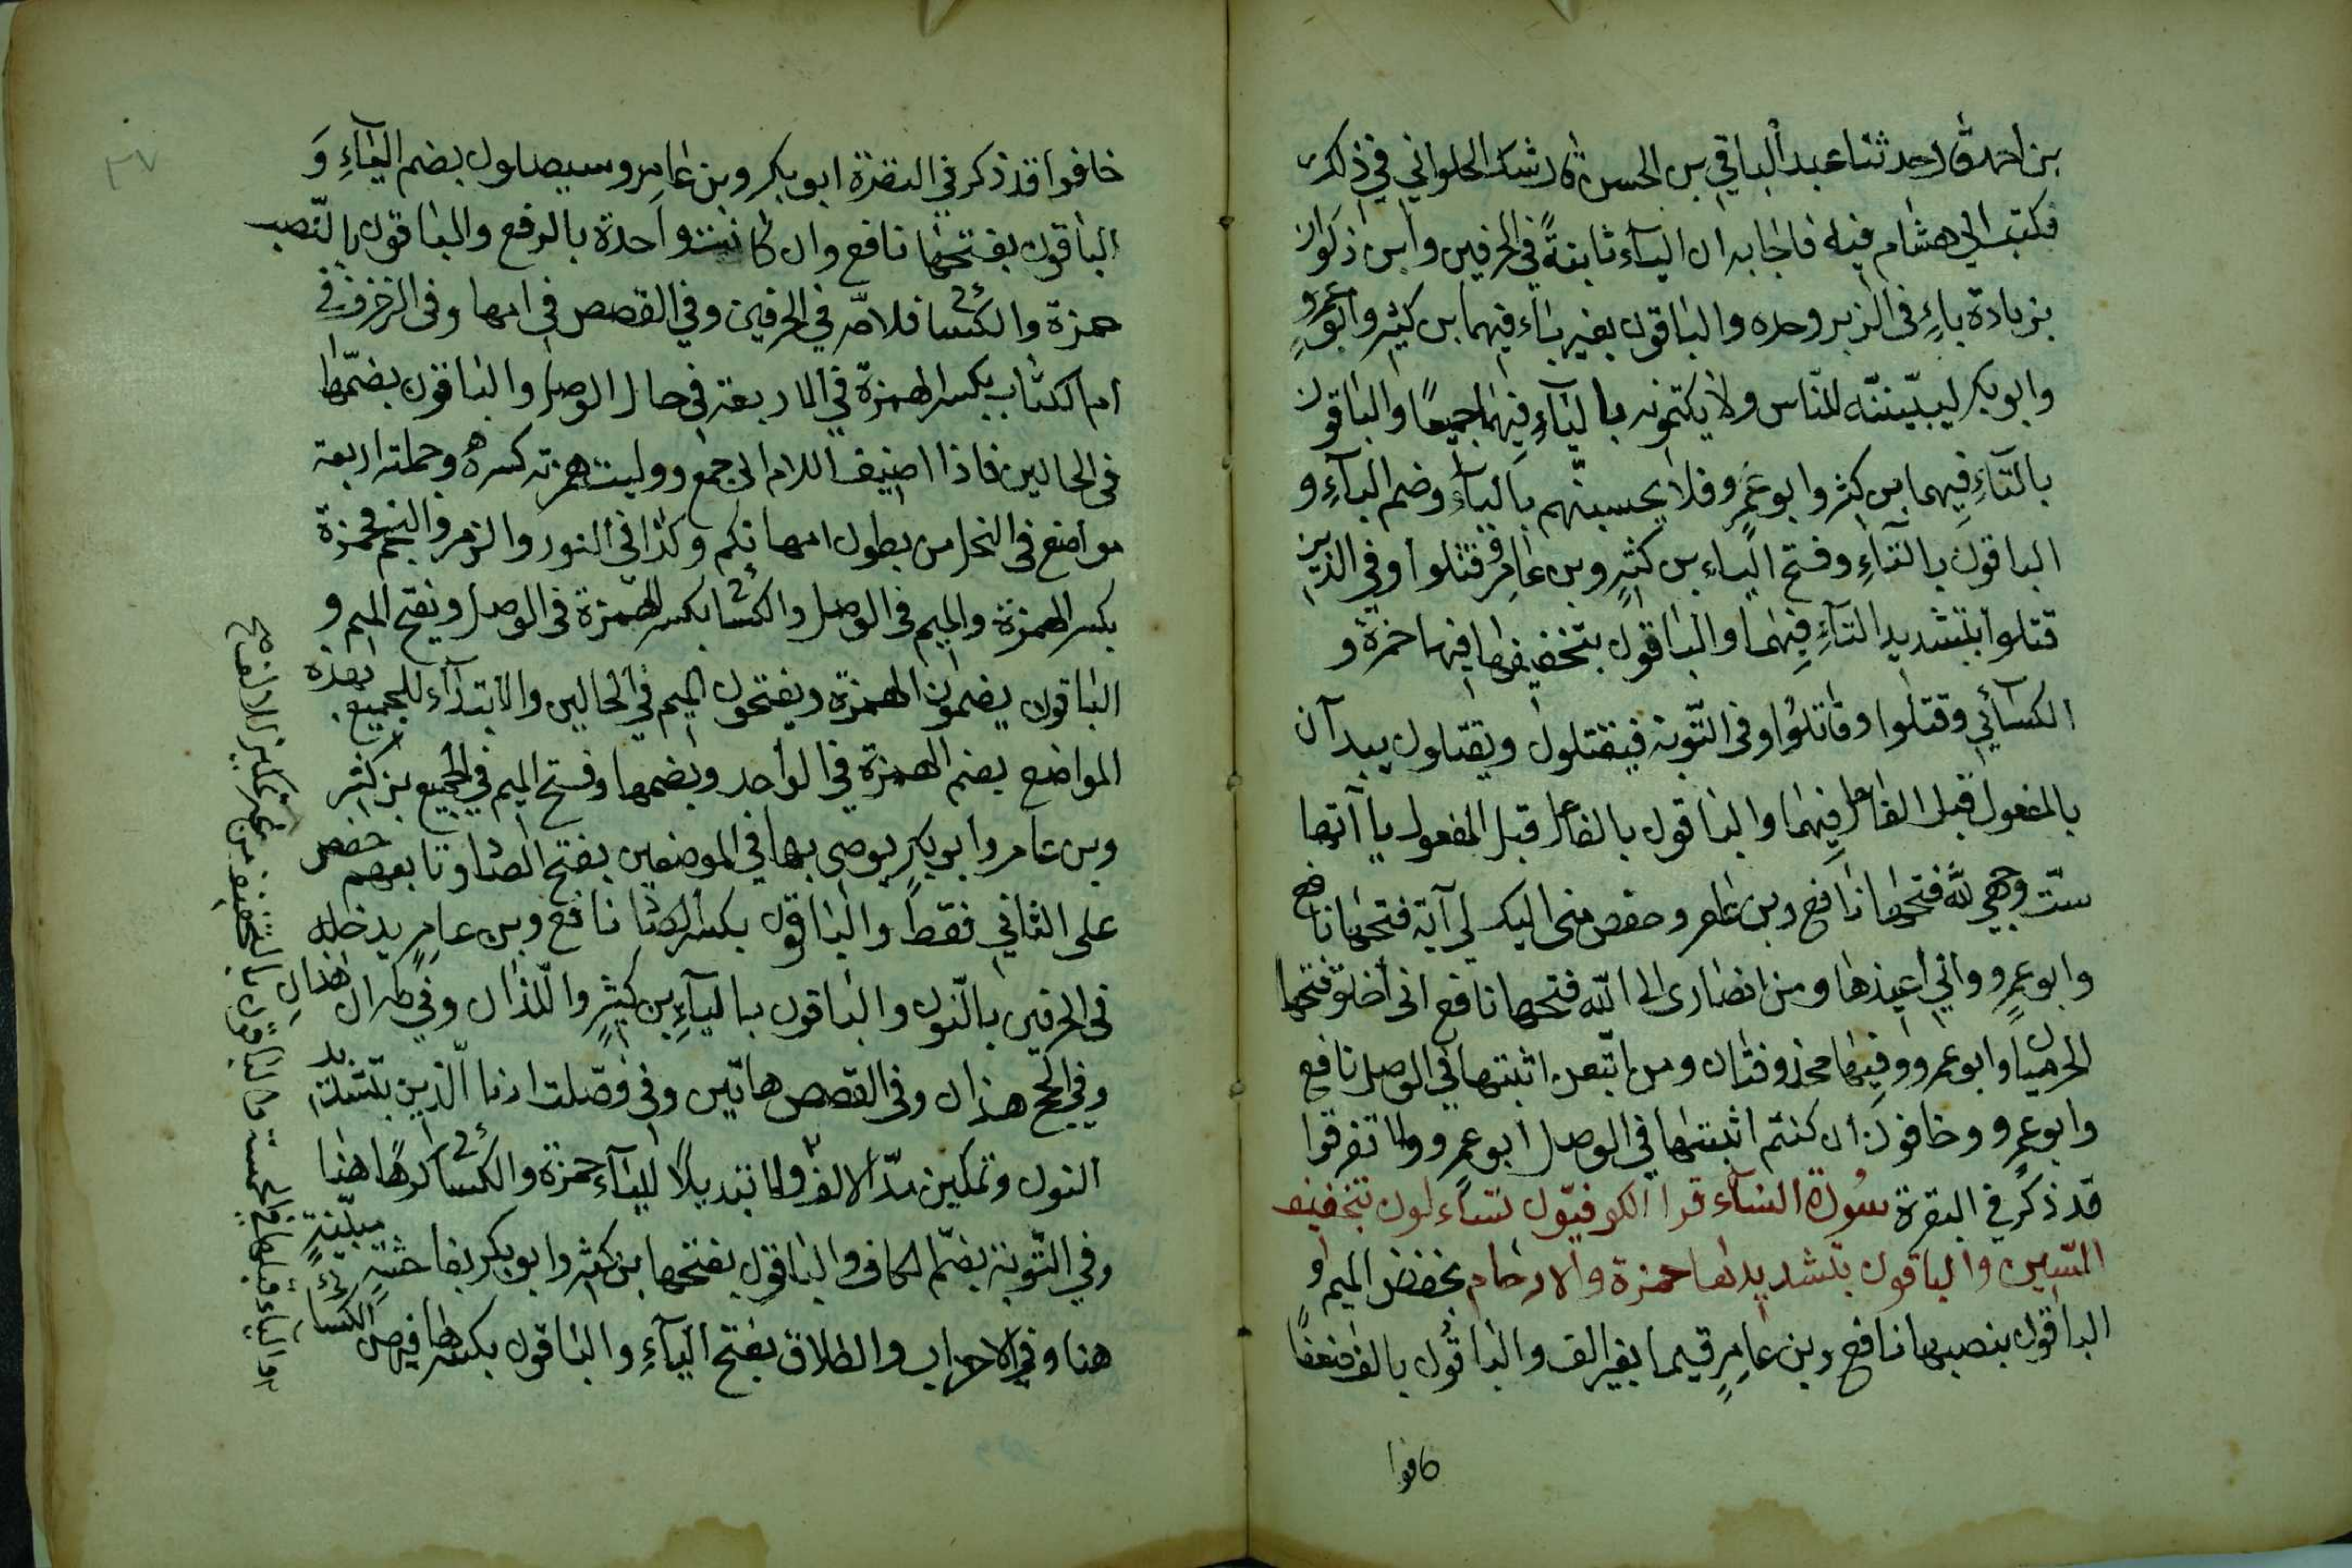 بن احمد قال حدثنا عبد الباقي بن الحسن قال شك الحلواني في ذلك
فكتب الى هشام فيه فاجابه ان الياء ثابتة في الحرفين وابن ذكوان
بزيادة باءٍ في الزبر وحده والباقون بغير باء فيهما بن كثير وابو عمرو
وابو بكر ليبيننّه للنّاس ولا يكتمونه بالياءِ فيهما جميعًا والباقون
بالتاءِ فيهما بن كثير وابو عمرو فلا يحسبنّهم بالياءِ وضم الباءِ و
الباقون بالتاءِ وفتح الباء بن كثيرٍ وبن عامر وقتلوا وفي الذين
قتلوا بتشديد التاءِ فيهما والباقون بتخفيفها فيهما حمزة و
الكسائي وقتلوا وقاتلوا وفي التّوبة فيقتلون ويقتلون يبدآن
بالمفعول قبل الفاعل فيهما والباقون بالفاعل قبل المفعول ياآتها
ستّ وجهي لله فتحها نافع وبن عامر وحفص منى اليك لى آية فتحها نافع
وابو عمرٍو واني اعيذها ومن انصارى الى اللّه فتحها نافع انى اخلق فتحها
الحرميان وابو عمرو وفيها محذوفتان ومن اتّبعن اثبتها في الوصل نافع
وابو عمرٍو وخافون ان كنتم اثبتها في الوصل ابو عمرو ولا تفرقوا
قد ذكر في البقرة سورة النساء قرا الكوفيّون تساءلون بتخفيف
السّين والباقون بتشديدها حمزة والارحام بخفض الميم و
الباقون بنصبها نافع وبن عامرٍ قيما بغير الف والباقون بالف ضعفا
خافوا
خافوا قد ذكر في البقرة ابو بكر وبن عامر وسيصلون بضم الياءِ وَ
الباقون بفتحها نافع وان كانت واحدة بالرفع والباقون بالنّصب
حمزة والكسائي فلامّه في الحرفين وفي القصص في امها وفي الزخرف في
ام الكتاب بكسر الهمزة في الاربعة في حال الوصل والباقون بضمّها
في الحالين فاذا اضيف اللام الى جمع ووليت همزته كسرة وجملته اربعة
مواضع في النحل من بطون امهاتكم وكذا في النور والزمر والنجم فحمزة
بكسر الهمزة والميم في الوصل والكسائي بكسر الهمزة في الوصل ويفتح الميم و
الباقون يضمون الهمزة ويفتحون الميم في الحالين والابتداء للجميع بهذه
المواضع بضم الهمزة في الواحد وبضمها وفتح الميم في الجميع بن كثير
وبن عامر وابو بكرٍ يوصى بها في الموضعين بفتح الصاد وتابعهم حفص
على الثاني فقط والباقون بكسر الصاد نافع وبن عامرٍ يدخله
في الحرفين بالنّون والباقون بالياءِ بن كثيرٍ والّلذان وفي طه ان هذان
وفي الحج هذان وفي القصص هاتين وفي فصّلت ارنا الّذين بتشديد
النون وتمكين مدّ الالف والياء حمزة والكسائي كرهًا هنا
وفي التّوبة بضمّ الكاف والباقون بفتحها بن كثير وابو بكر بفاحشة مبيّنةٍ
هنا وفي الاحزاب والطلاق بفتح الياءِ والباقون بكسرها فيهن الكسائي